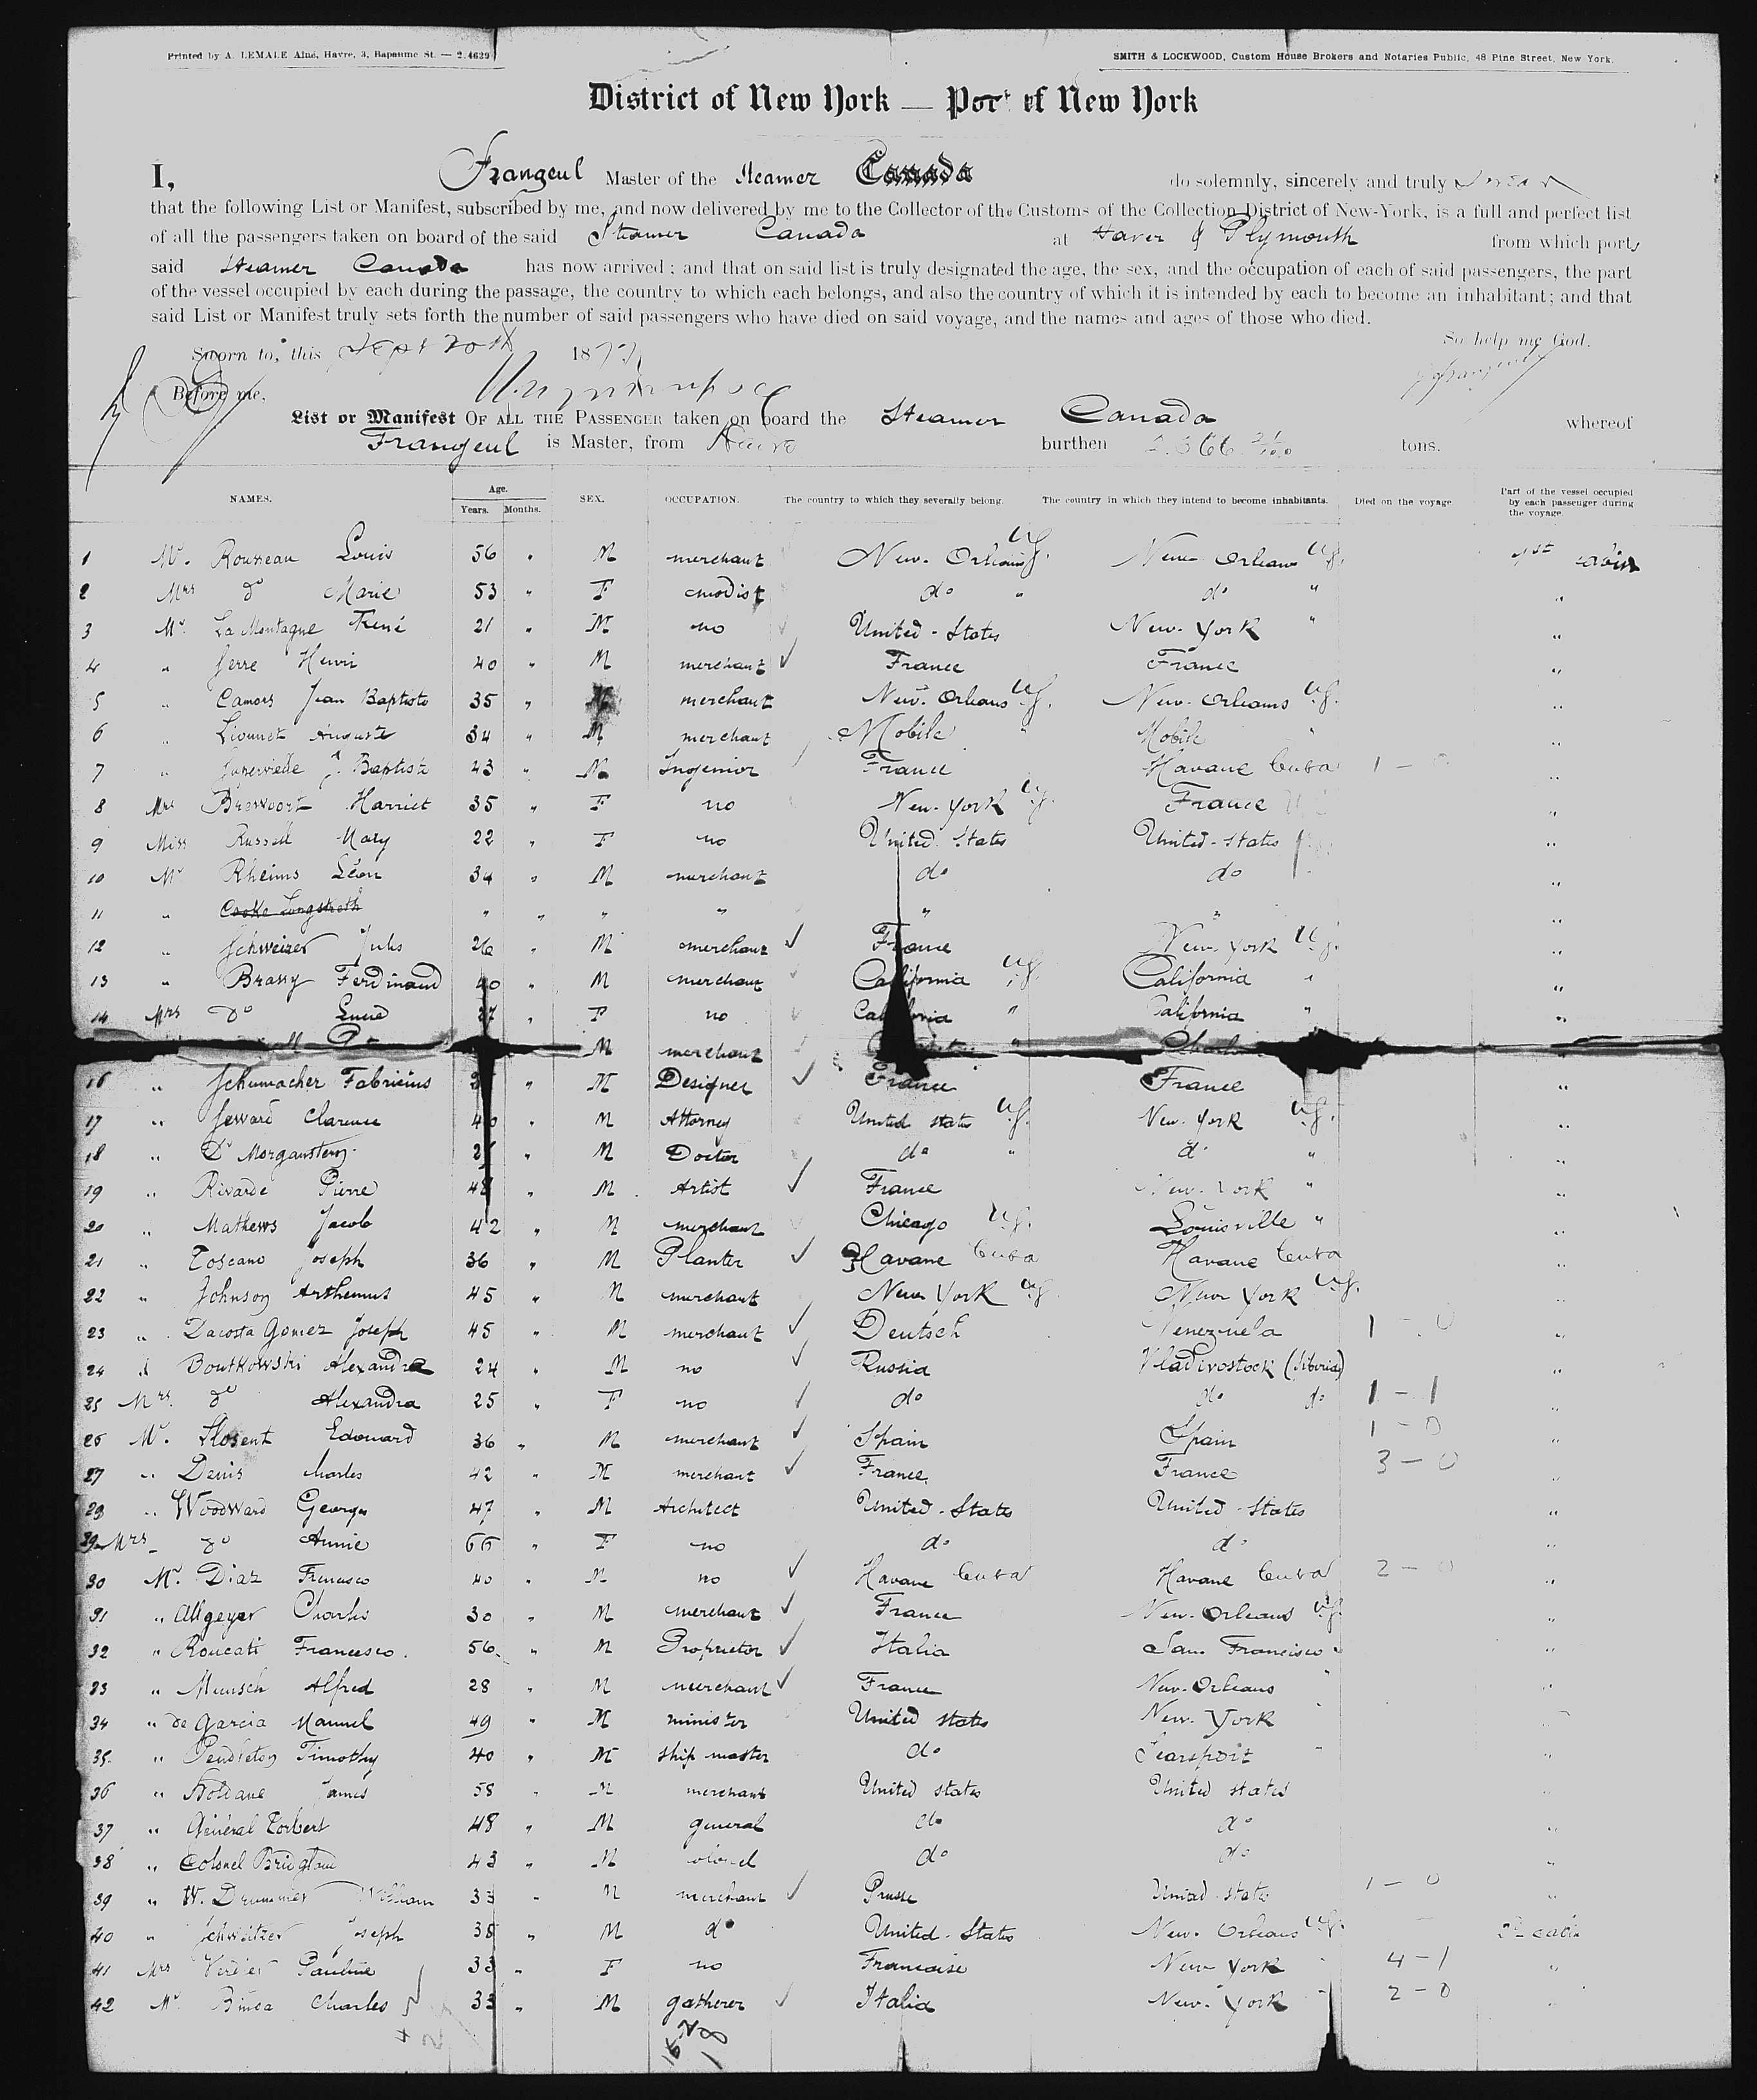 Printed by A. LEMALE Aîné, Havre, 3, Bapaume St. — 2.4639
SMITH & LOCKWOOD, Custom House Brokers and Notaries Public, 48 Pine Street, New York.
District of New York — Port of New York
I, Frangeul Master of the Steamer Canada do solemnly, sincerely and truly swear
that the following List or Manifest, subscribed by me, and now delivered by me to the Collector of the Customs of the Collection District of New-York, is a full and perfect list
of all the passengers taken on board of the said Steamer Canada at Haver & Plymouth from which ports
said Steamer Canada has now arrived; and that on said list is truly designated the age, the sex, and the occupation of each of said passengers, the part
of the vessel occupied by each during the passage, the country to which each belongs, and also the country of which it is intended by each to become an inhabitant; and that
said List or Manifest truly sets forth the number of said passengers who have died on said voyage, and the names and ages of those who died.
So help me God.
Sworn to, this Sept 20th 187
Before me,
List or Manifest OF ALL THE PASSENGER taken on board the Steamer Canada whereof
Frangeul is Master, from Havre burthen tons.
NAMES. Age. Years. Months. SEX. OCCUPATION. The country to which they severally belong. The country in which they intend to become inhabitants. Died on the voyage Part of the vessel occupied by each passenger during the voyage.
1 Mr. Rousseau Louis 56 " M merchant New. Orleans U.S. New Orleans U.S. 1st cabin
2 Mrs do Marie 53 " F modist do " do " "
3 Mr. La Montagne René 21 " M no United-States New. York " "
4 " Serre Henri 40 " M merchant France France "
5 " Camors Jean Baptiste 35 " M merchant New. Orleans U.S. New. Orleans U.S. "
6 " Auguste 34 " M merchant Mobile " Mobile "
7 " J. Baptiste 43 " M Ingenior France Havane Cuba 1 - 0 "
8 Mrs Brewoort Harriet 35 " F no New-York U.S. France "
9 Miss Russell Mary 22 " F no United States United-States "
10 Mr Rheims Léon 34 " M merchant do do "
11 " Cooke Longstreth " " " " " " "
12 " Schweizer Jules 26 " M merchant France New. York U.S. "
13 " Ferdinand 40 " M merchant California U.S. California " "
14 Mrs do 27 " F no California " California " "
M merchant "
16 " Schumacher Fabricius " M Designer France France "
17 " Seward Clarence 40 " M Attorney United states U.S. New. York U.S. "
18 " Dr Morganstern " M Doctor do " do " "
19 " Rivarde Pierre 48 " M Artist France New. York " "
20 " Mathews Jacob 42 " M merchant Chicago U.S. Louisville " "
21 " Toscano Joseph 36 " M Planter Havane Cuba Havane Cuba "
22 " Johnson Arthemus 45 " M merchant New York U.S. New York U.S. "
23 " Dacosta Gomez Joseph 45 " M merchant Deutsch Venezuela 1 - 0 "
24 " Boutkowski Alexandre 24 " M no Russia Vladivostock (Siberia) "
25 Mrs. do Alexandra 25 " F no do do do 1 - 1 "
26 Mr. Edouard 36 " M merchant Spain Spain 1 - 0 "
27 " Denis Charles 42 " M merchant France France 3 - 0 "
29 " Woodward George 47 " M Architect United-States United-States "
29 Mrs do Annie 66 " F no do do "
30 Mr. Diaz Francisco 40 " M no Havane Cuba Havane Cuba 2 - 0 "
31 " Allgeyer Charles 30 " M merchant France New. Orleans U.S. "
32 " Roncati Francesco. 56 " M Proprietor Italia San Francisco " "
33 " Munsch Alfred 28 " M merchant France New. Orleans " "
34 " de Garcia Manuel 49 " M minister United states New. York "
35. " Pendleton Timothy 40 " M ship master do Searsport " "
36 " James 58 " M merchant United states United states "
37 " Général Torbert 48 " M general do do "
38 " Colonel 43 " M colonel do do "
39 " W. William 33 " M merchant Prusse United-States 1 - 0 "
40 " Schweitzer Joseph 38 " M do United-States New. Orleans U.S.
41 Mrs Verdier Pauline 33 " F no Francaise New York " 4 - 1 "
42 Mr Charles 33 " M gatherer Italia New. York " 2 - 0 "